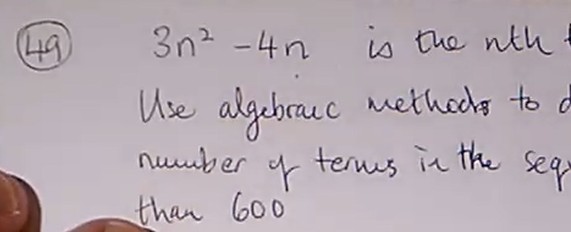 49 3n² - 4n is the nth
Use algebraic methods to
number of terms in the
than 600